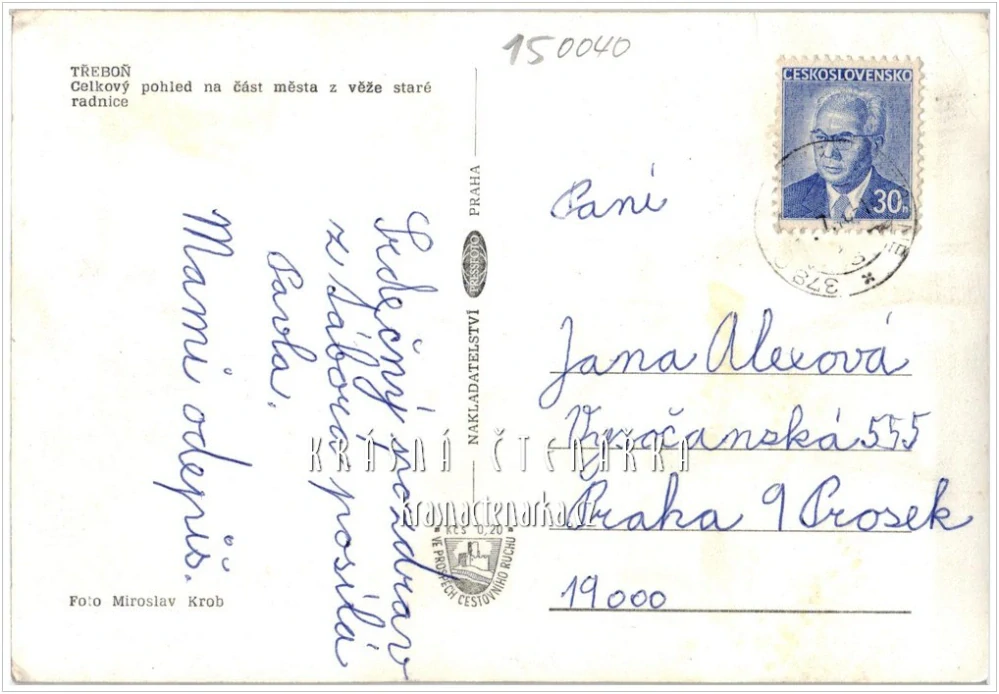 150040
TŘEBOŇ
Celkový pohled na část města z věže staré
radnice
ČESKOSLOVENSKO
30h
378
Srdečný pozdrav
z tábora posílá
Pavla.
Mami odepiš.
NAKLADATELSTVÍ PRESSFOTO PRAHA
Paní
Jana Alexová
Vysočanská 555
Praha 9 Prosek
19000
KRÁSNÁ ČTENÁŘKA
krasnactenarka.cz
Kčs 0,20
VE PROSPĚCH CESTOVNÍHO RUCHU
Foto Miroslav Krob